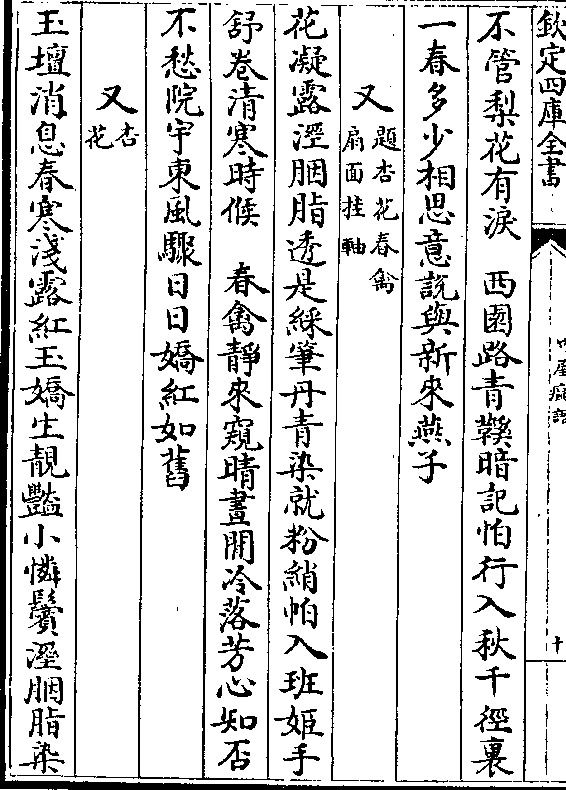 欽定四庫全書
竹屋癡語
十
不管梨花有淚　西園路青鞵暗記怕行入秋千徑裏
一春多少相思意說與新來燕子
又 題杏花春禽
扇面挂軸
花凝露溼胭脂透是綵筆丹青染就粉綃帕入班姬手
舒卷清寒時候　春禽靜來窺晴晝問冷落芳心知否
不愁院宇東風驟日日嬌紅如舊
又 杏
花
玉壇消息春寒淺露紅玉嬌生靚豔小憐鬢溼胭脂染